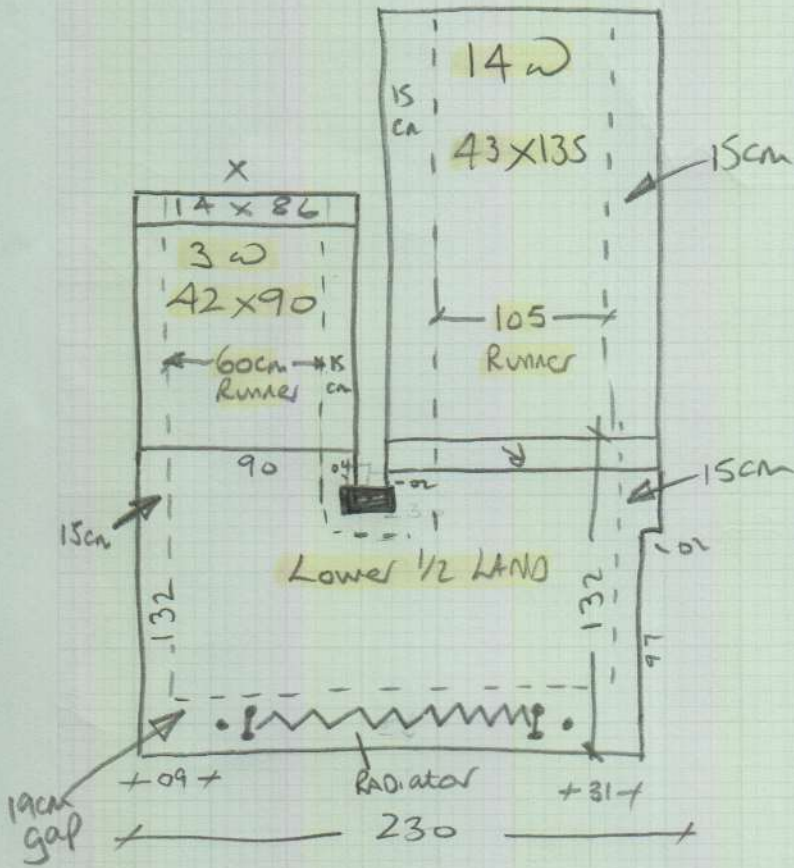 14 W
15
cm
43 X 135
15cm
X
14 x 86
3 W
42 x 90
105
Runner
60cm
Runner
15
cm
90
04
-02
15cm
15cm
Lower 1/2 LAND
-02
132
132
97
19cm
gap
09
RADiator
31
230